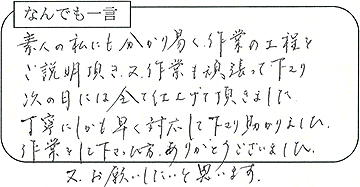 なんでも一言
素人の私にも分かり易く、作業の工程を
ご説明頂き、又、作業も頑張って下さり
次の日には全て仕上げて頂きました
丁寧にしかも早く対応して下さり助かりました。
作業をして下さった方、ありがとうございました。
又、お願いしたいと思います。